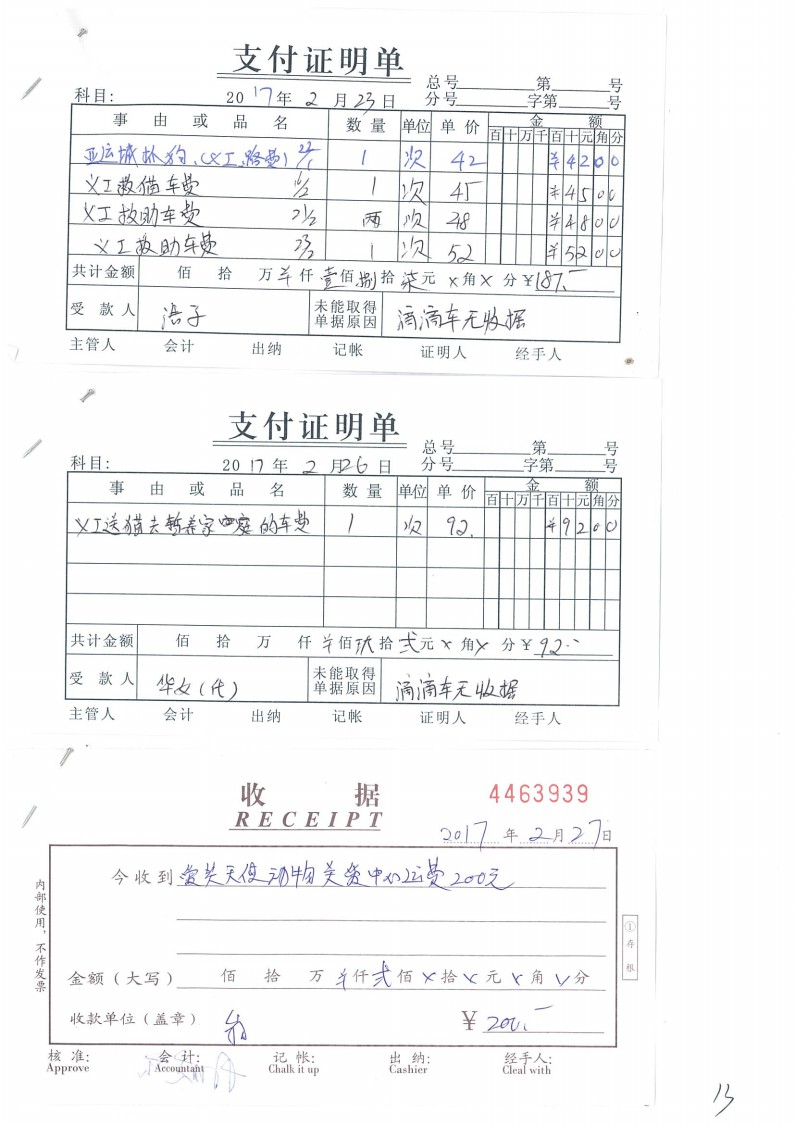 支付证明单
总号 第 号
科目: 2017年 2 月 23 日 分号 字第 号
事 由 或 品 名 数 量 单位 单 价 金 额
百十万千百十元角分
亚运城抓狗、(义工路费) 1 次 42 ¥4200
义工救猫车费 1 次 45 ¥4500
义工救助车费 两 次 48 ¥4800
义工救助车费 1 次 52 ¥5200
共计金额 佰 拾 万 仟 壹佰捌拾柒元 x角x分 ¥187.-
受 款 人 浩子 未能取得单据原因 滴滴车无收据
主管人 会计 出纳 记帐 证明人 经手人
支付证明单
总号 第 号
科目: 2017年 2 月26 日 分号 字第 号
事 由 或 品 名 数 量 单位 单 价 金 额
百十万千百十元角分
义工送猫去暂养家庭的车费 1 次 92. ¥9200
共计金额 佰 拾 万 仟 佰玖拾贰元 x 角x 分 ¥92.-
受 款 人 华女(代) 未能取得单据原因 滴滴车无收据
主管人 会计 出纳 记帐 证明人 经手人
收 据
4463939
RECEIPT
2017 年 2 月 27 日
今收到 爱芙天使动物关爱中心运费200元
金额(大写) 佰 拾 万 仟贰佰x拾x元x角x分
收款单位(盖章) ¥ 200.-
内部使用,不作发票
①存根
核 准: 会 计: 记 帐: 出 纳: 经手人:
Approve Accountant Chalk it up Cashier Cleal with
13